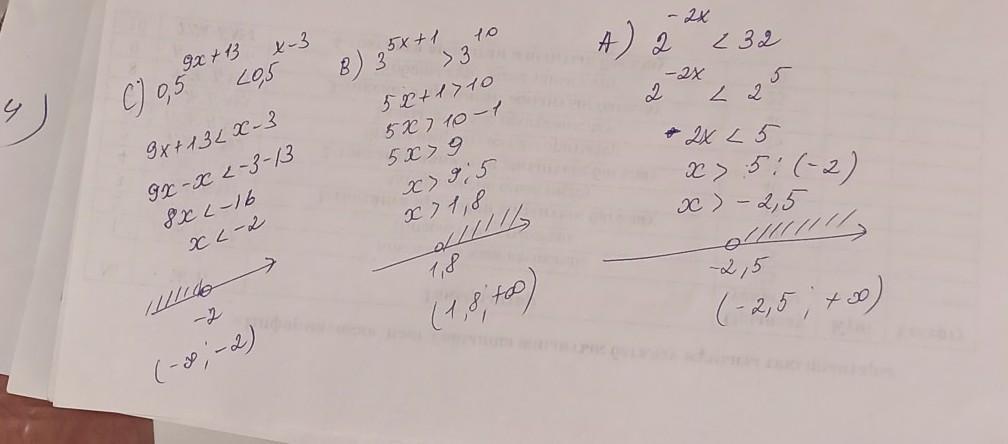 4)
C) 0,5^(9x+13) < 0,5^(x-3)
9x+13 < x-3
9x-x < -3-13
8x < -16
x < -2
-2
(-∞; -2)
B) 3^(5x+1) > 3^10
5x+1 > 10
5x > 10-1
5x > 9
x > 9:5
x > 1,8
1,8
(1,8; +∞)
A) 2^(-2x) < 32
2^(-2x) < 2^5
-2x < 5
x > 5:(-2)
x > -2,5
-2,5
(-2,5; +∞)